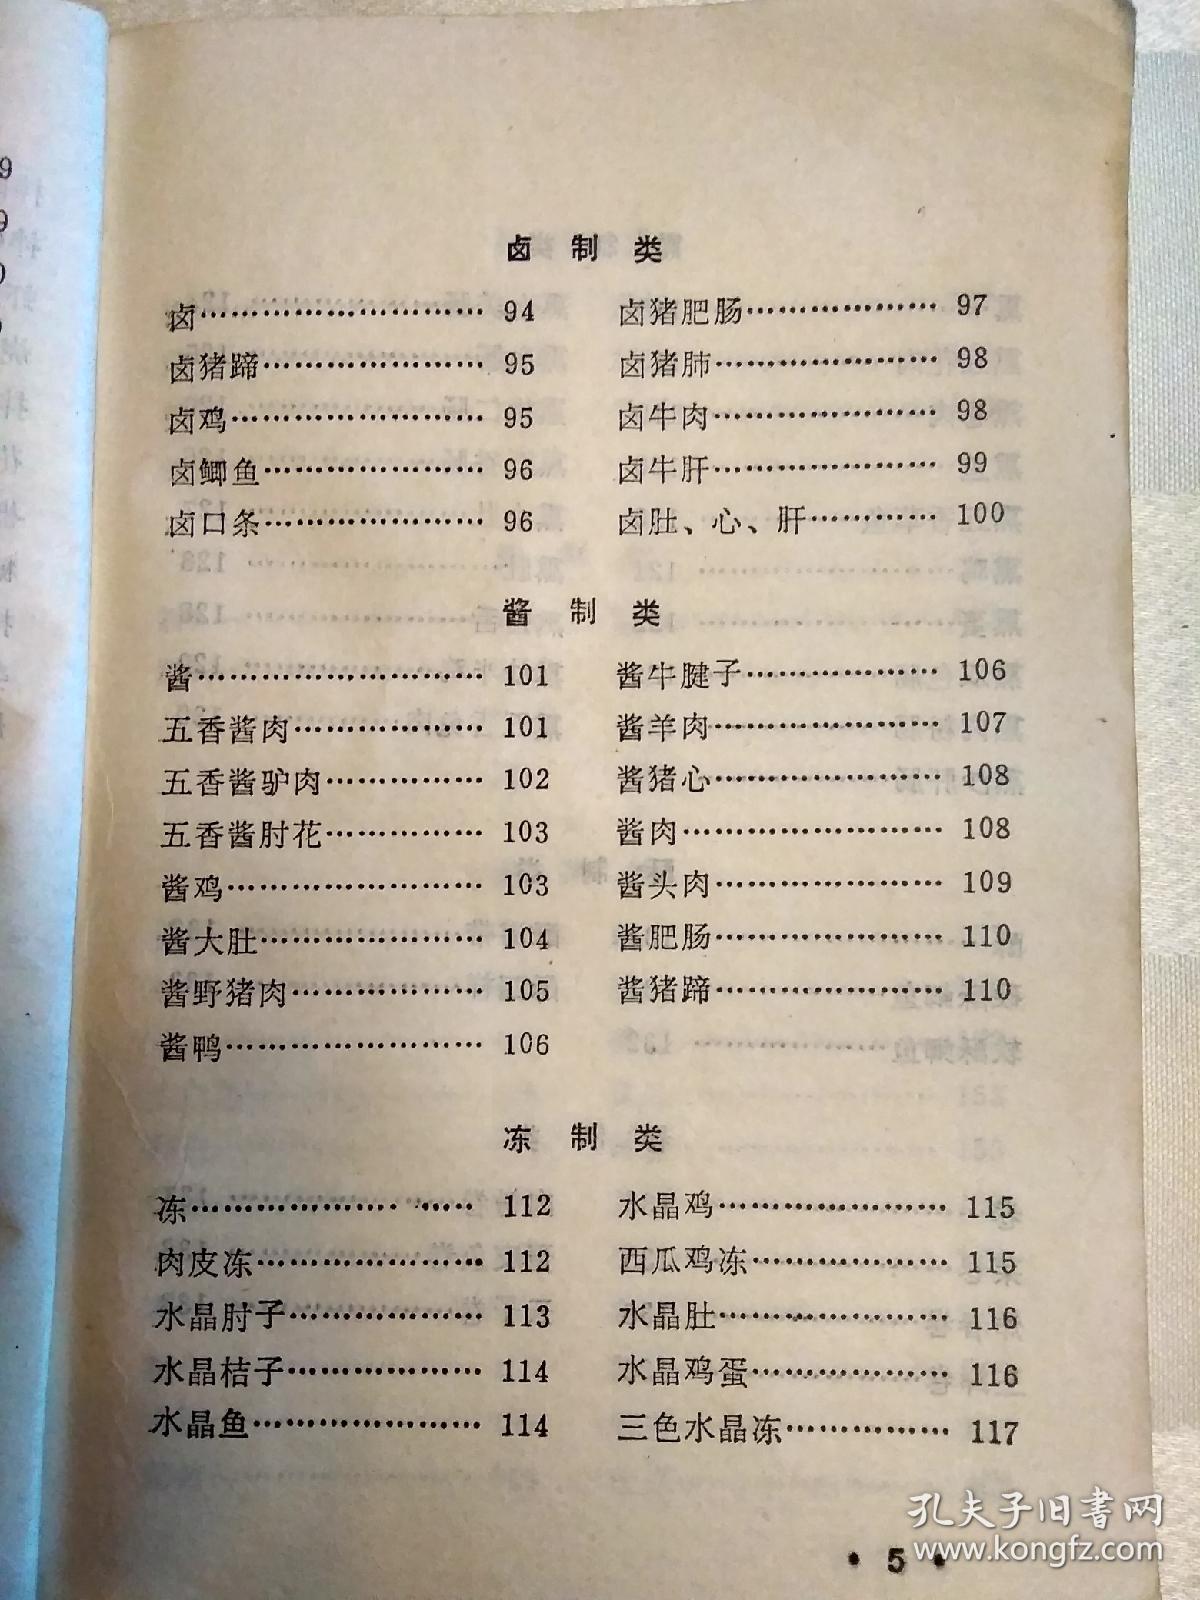 卤 制 类
卤………………………… 94
卤猪蹄………………… 95
卤鸡…………………… 95
卤鲫鱼………………… 96
卤口条………………… 96
卤猪肥肠……………… 97
卤猪肺………………… 98
卤牛肉………………… 98
卤牛肝………………… 99
卤肚、心、肝………… 100
酱 制 类
酱……………………… 101
五香酱肉……………… 101
五香酱驴肉…………… 102
五香酱肘花…………… 103
酱鸡…………………… 103
酱大肚………………… 104
酱野猪肉……………… 105
酱鸭…………………… 106
酱牛腱子……………… 106
酱羊肉………………… 107
酱猪心………………… 108
酱肉…………………… 108
酱头肉………………… 109
酱肥肠………………… 110
酱猪蹄………………… 110
冻 制 类
冻……………………… 112
肉皮冻………………… 112
水晶肘子……………… 113
水晶桔子……………… 114
水晶鱼………………… 114
水晶鸡………………… 115
西瓜鸡冻……………… 115
水晶肚………………… 116
水晶鸡蛋……………… 116
三色水晶冻…………… 117
• 5 •
孔夫子旧书网
www.kongfz.com